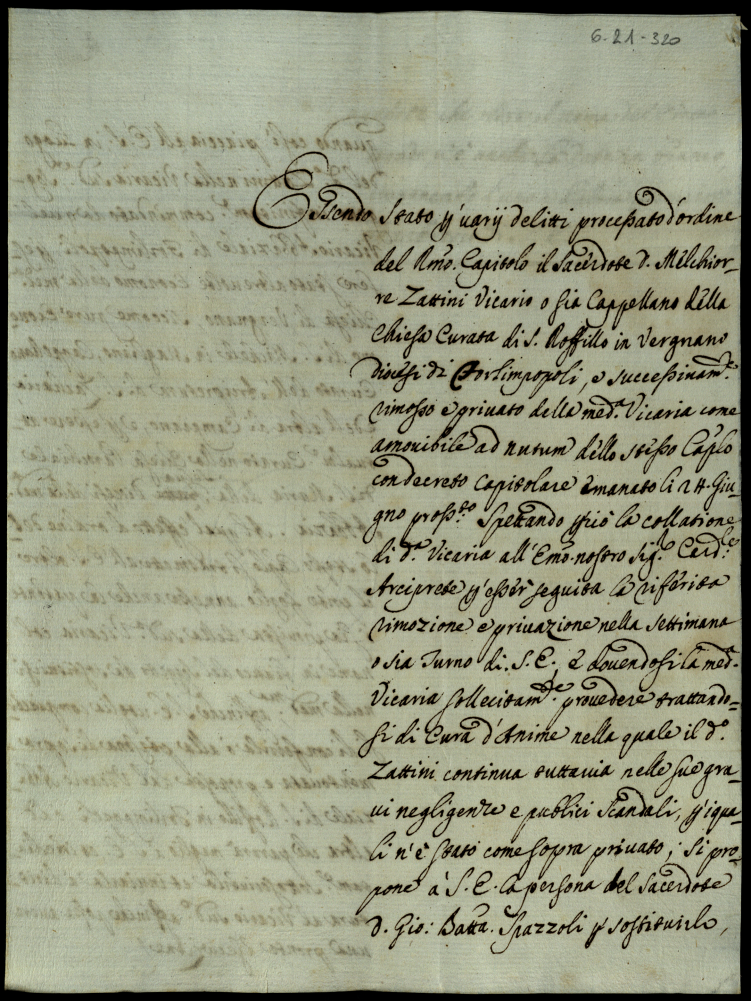 6-21-320
Essendo stato p varij delitti processato d'ordine
del Rmo. Capitolo il Sacerdote D. Melchior-
re Zattini Vicario o sia Cappellano della
Chiesa Curata di S. Roffillo in Vergnano
Diocesi di Forlimpopoli, e successivam.te
rimosso e privato della med.a Vicaria come
amovibile ad nutum dello stesso Caplo
con decreto Capitolare emanato li 24 Giu-
gno pross.to Spettando p ciò la collatione
di d.a Vicaria all'Emo. nostro Sig.r Card.le
Arciprete p esser seguita la riferita
rimozione e privazione nella settimana
o sia Turno di S. E., e dovendosi la med.a
Vicaria sollecitam.te provedere trattando-
si di Cura d'Anime nella quale il d.o
Zattini continua tuttavia nelle sue gra-
vi negligenze e publici scandali, p i qua-
li n'è stato come sopra privato; si pro-
pone à S. E. la persona del Sacerdote
D. Gio: Batta. Spazzoli p sostituirlo,